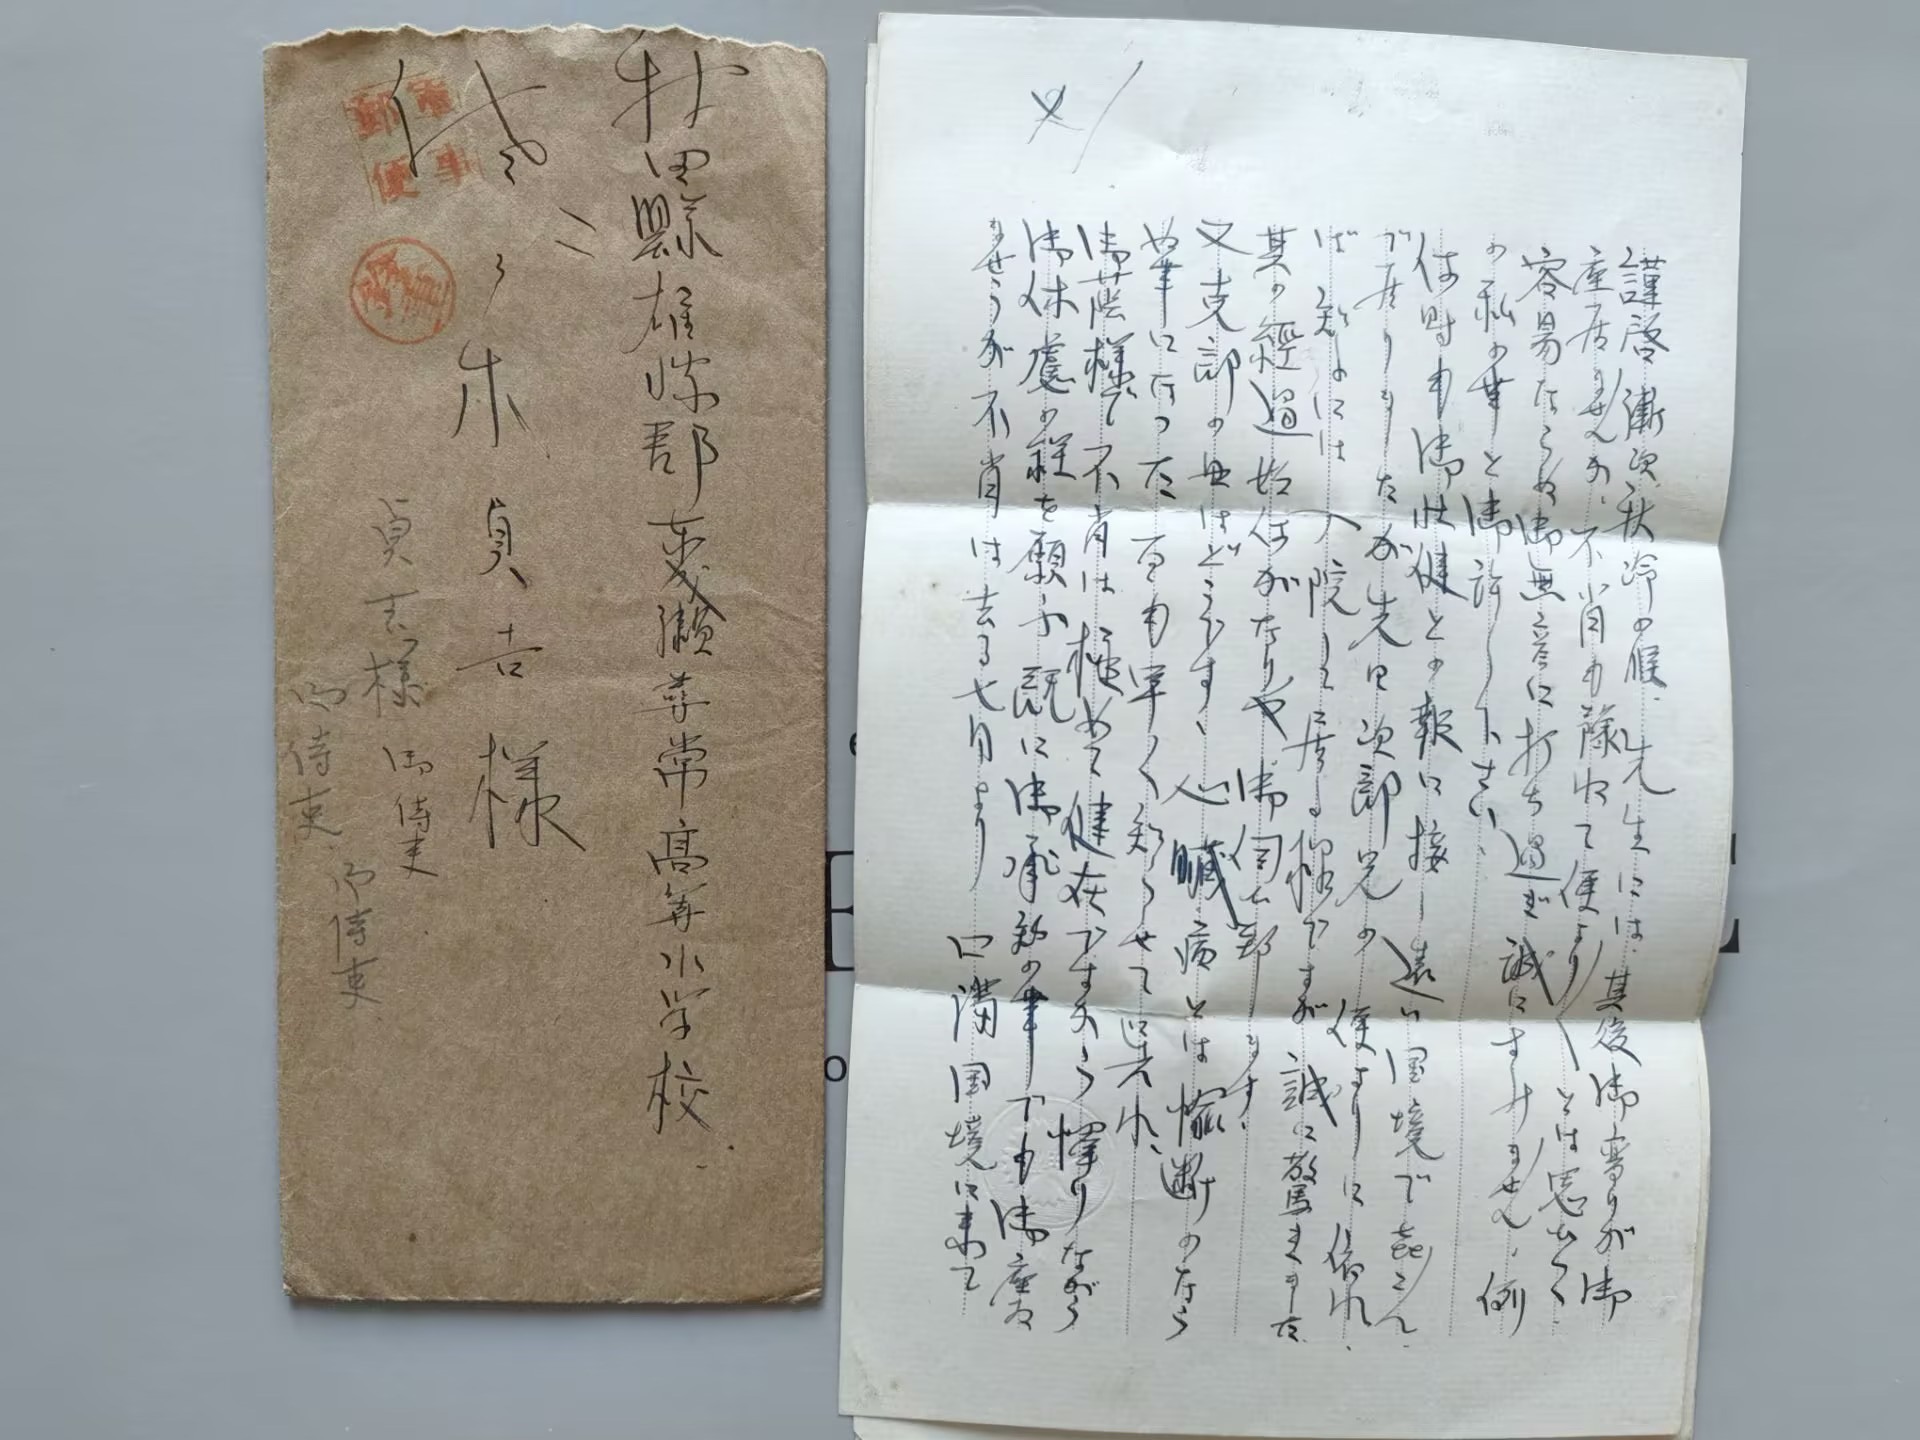 秋田縣雄勝郡東成瀬尋常高等小学校
佐々木貞吉様
貞吉様 御侍吏
御侍吏
御侍吏
軍事
郵便
謹啓 漸次秋冷の候、先生には其後御変りが御
座居ませんか、不肖も蔭乍て便より〱とは思ひつゝ
容易ならぬ御無音に打ち過ぎ誠にすみません、例
の私の事と御許し下さい、
何時も御壮健との報に接し遠い国境で喜こん
で居りましたが先日次郎兄の便よりに依れ
ば 知よには入院して居る様ですが誠に驚きました
其の経過如何がなりや御伺ひ致します、
又克郎の母はどうです、心臓病とは愉断のなら
ぬ事になった 一日も早く知らせて呉れ、
御蔭様で不肖は極めて健在ですから憚りながら
御休慮の程を願ふ 既に御承知の事でも御座居
ませうが不肖は去る七月より 口満国境に来て